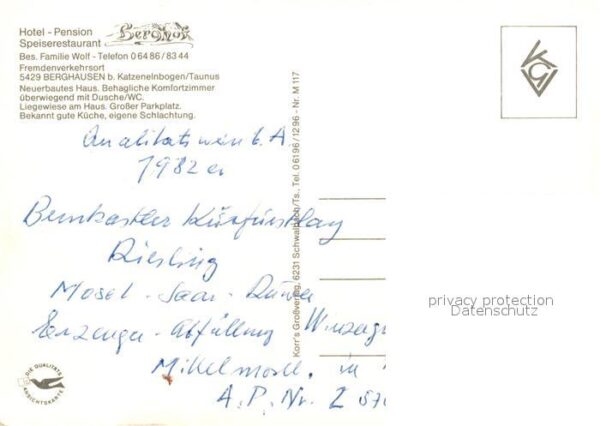 Hotel - Pension
Speiserestaurant Berghof
Bes. Familie Wolf - Telefon 0 64 86 / 83 44
Fremdenverkehrsort
5429 BERGHAUSEN b. Katzenelnbogen/Taunus
Neuerbautes Haus. Behagliche Komfortzimmer
überwiegend mit Dusche/WC.
Liegewiese am Haus. Großer Parkplatz.
Bekannt gute Küche, eigene Schlachtung.
Qualitätswein b. A.
1982 er
Bernkastler Kurfürstlay
Riesling
Mosel - Saar - Ruwer
Erzeuger - Abfüllung Winzerg
Mittelmosel. in
A. P. Nr. 2 576
Korr's Großverlag, 6231 Schwalbach/Ts., Tel. 0 61 96 / 12 96 - Nr. M 117
KGV
DIE QUALITÄTS
ANSICHTSKARTE
privacy protection
Datenschutz